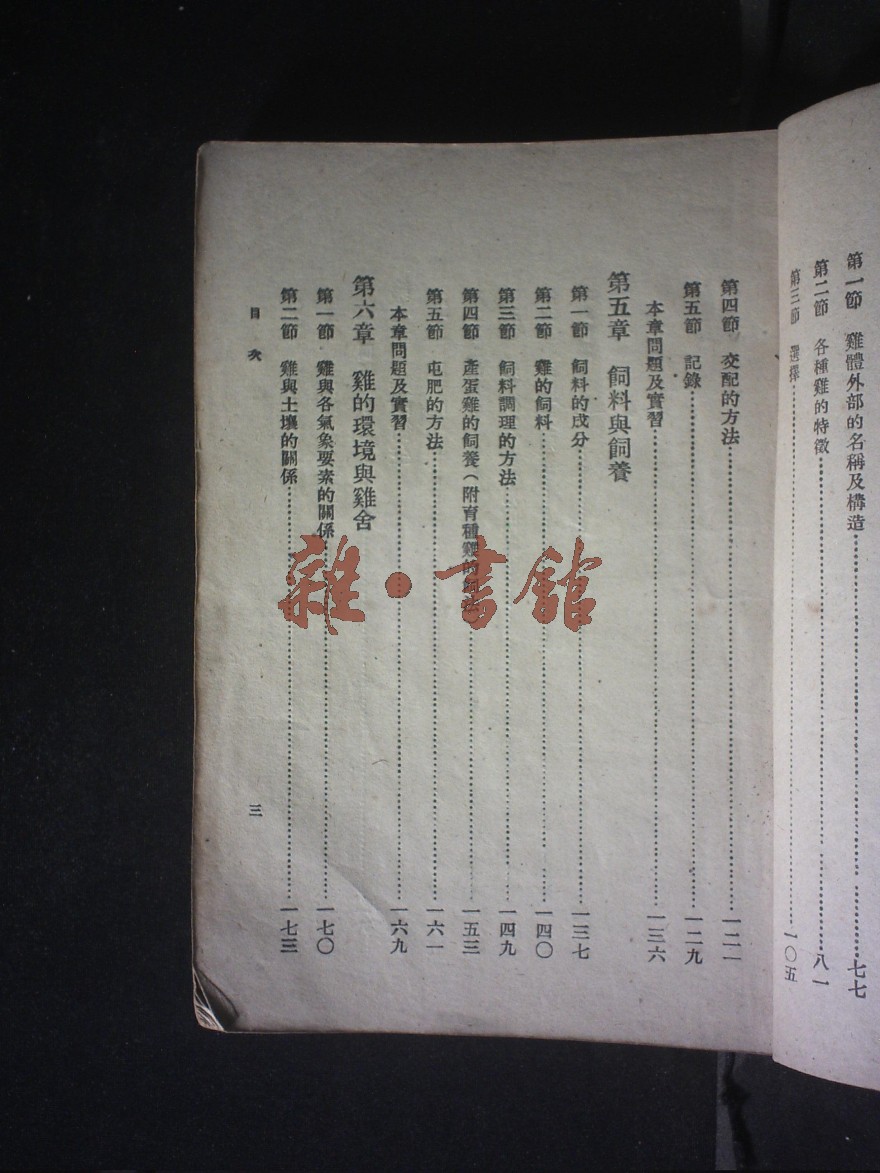 第一節　雞體外部的名稱及構造……七七
第二節　各種雞的特徵……八一
第三節　選擇……一〇五
第四節　交配的方法……一二一
第五節　記錄……一二九
本章問題及實習……一三六
第五章　飼料與飼養
第一節　飼料的成分……一三七
第二節　雞的飼料……一四〇
第三節　飼料調理的方法……一四九
第四節　產蛋雞的飼養(附育種雞的飼……一五三
第五節　屯肥的方法……一六一
本章問題及實習……一六九
第六章　雞的環境與雞舍
第一節　雞與各氣象要素的關係……一七〇
第二節　雞與土壤的關係……一七三
目次
三
雜·書館